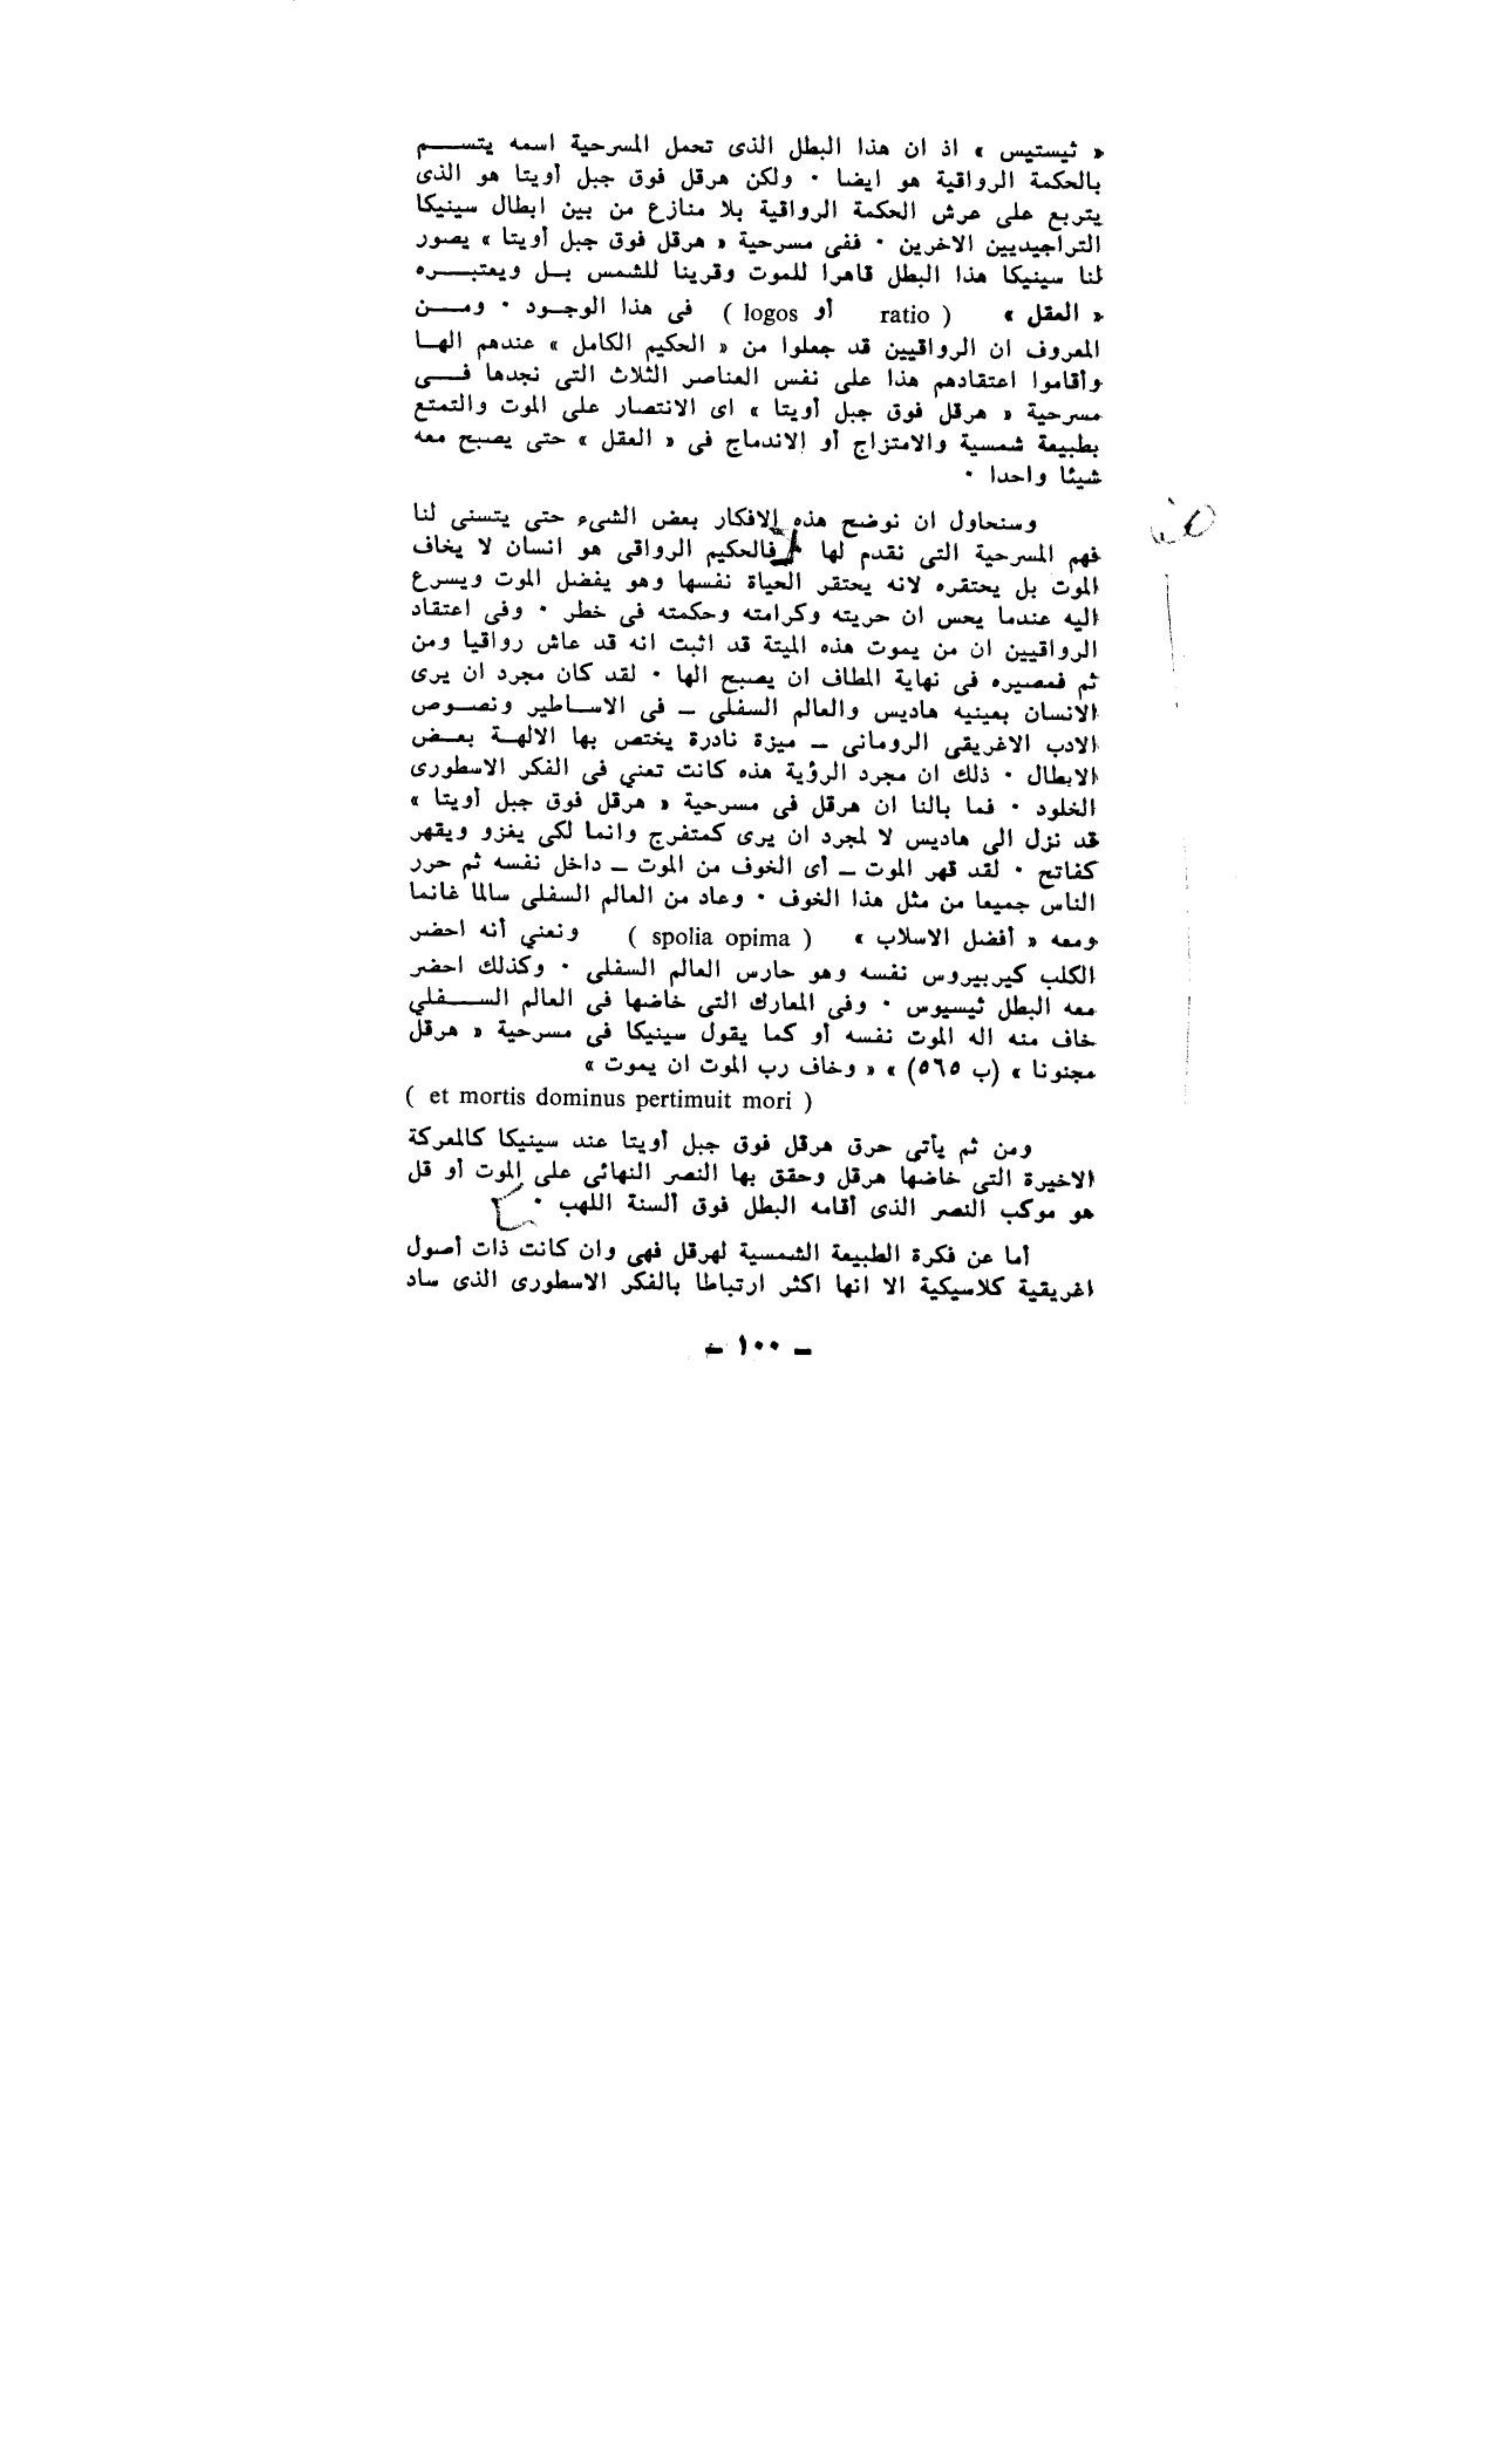 « ثيستيس » اذ ان هذا البطل الذى تحمل المسرحية اسمه يتســـم
بالحكمة الرواقية هو ايضا · ولكن هرقل فوق جبل أويتا هو الذى
يتربع على عرش الحكمة الرواقية بلا منازع من بين ابطال سينيكا
التراجيديين الاخرين · ففى مسرحية « هرقل فوق جبل أويتا » يصور
لنا سينيكا هذا البطل قاهرا للموت وقرينا للشمس بــل ويعتبـــره
« العقل » ( ratio أو logos ) فى هذا الوجــود · ومـــن
المعروف ان الرواقيين قد جعلوا من « الحكيم الكامل » عندهم الهــا
وأقاموا اعتقادهم هذا على نفس العناصر الثلاث التى نجدها فـــى
مسرحية « هرقل فوق جبل أويتا » اى الانتصار على الموت والتمتع
بطبيعة شمسية والامتزاج أو الاندماج فى « العقل » حتى يصبح معه
شيئا واحدا ·
وسنحاول ان نوضح هذه الافكار بعض الشىء حتى يتسنى لنا
فهم المسرحية التى نقدم لها فالحكيم الرواقى هو انسان لا يخاف
الموت بل يحتقره لانه يحتقر الحياة نفسها وهو يفضل الموت ويسرع
اليه عندما يحس ان حريته وكرامته وحكمته فى خطر · وفى اعتقاد
الرواقيين ان من يموت هذه الميتة قد اثبت انه قد عاش رواقيا ومن
ثم فمصيره فى نهاية المطاف ان يصبح الها · لقد كان مجرد ان يرى
الانسان بعينيه هاديس والعالم السفلى ــ فى الاســاطير ونصــوص
الادب الاغريقى الرومانى ــ ميزة نادرة يختص بها الالهــة بعــض
الابطال · ذلك ان مجرد الرؤية هذه كانت تعني فى الفكر الاسطورى
الخلود · فما بالنا ان هرقل فى مسرحية « هرقل فوق جبل أويتا »
قد نزل الى هاديس لا لمجرد ان يرى كمتفرج وانما لكى يغزو ويقهر
كفاتح · لقد قهر الموت ــ أى الخوف من الموت ــ داخل نفسه ثم حرر
الناس جميعا من مثل هذا الخوف · وعاد من العالم السفلى سالما غانما
ومعه « أفضل الاسلاب » ( spolia opima ) ونعني أنه احضر
الكلب كيربيروس نفسه وهو حارس العالم السفلى · وكذلك احضر
معه البطل ثيسيوس · وفى المعارك التى خاضها فى العالم الســـفلي
خاف منه اله الموت نفسه أو كما يقول سينيكا فى مسرحية « هرقل
مجنونا » (ب ٥٦٥) » « وخاف رب الموت ان يموت »
( et mortis dominus pertimuit mori )
ومن ثم يأتى حرق هرقل فوق جبل أويتا عند سينيكا كالمعركة
الاخيرة التى خاضها هرقل وحقق بها النصر النهائى على الموت أو قل
هو موكب النصر الذى أقامه البطل فوق ألسنة اللهب ·
أما عن فكرة الطبيعة الشمسية لهرقل فهى وان كانت ذات أصول
اغريقية كلاسيكية الا انها اكثر ارتباطا بالفكر الاسطورى الذى ساد
ــ ١٠٠ ــ